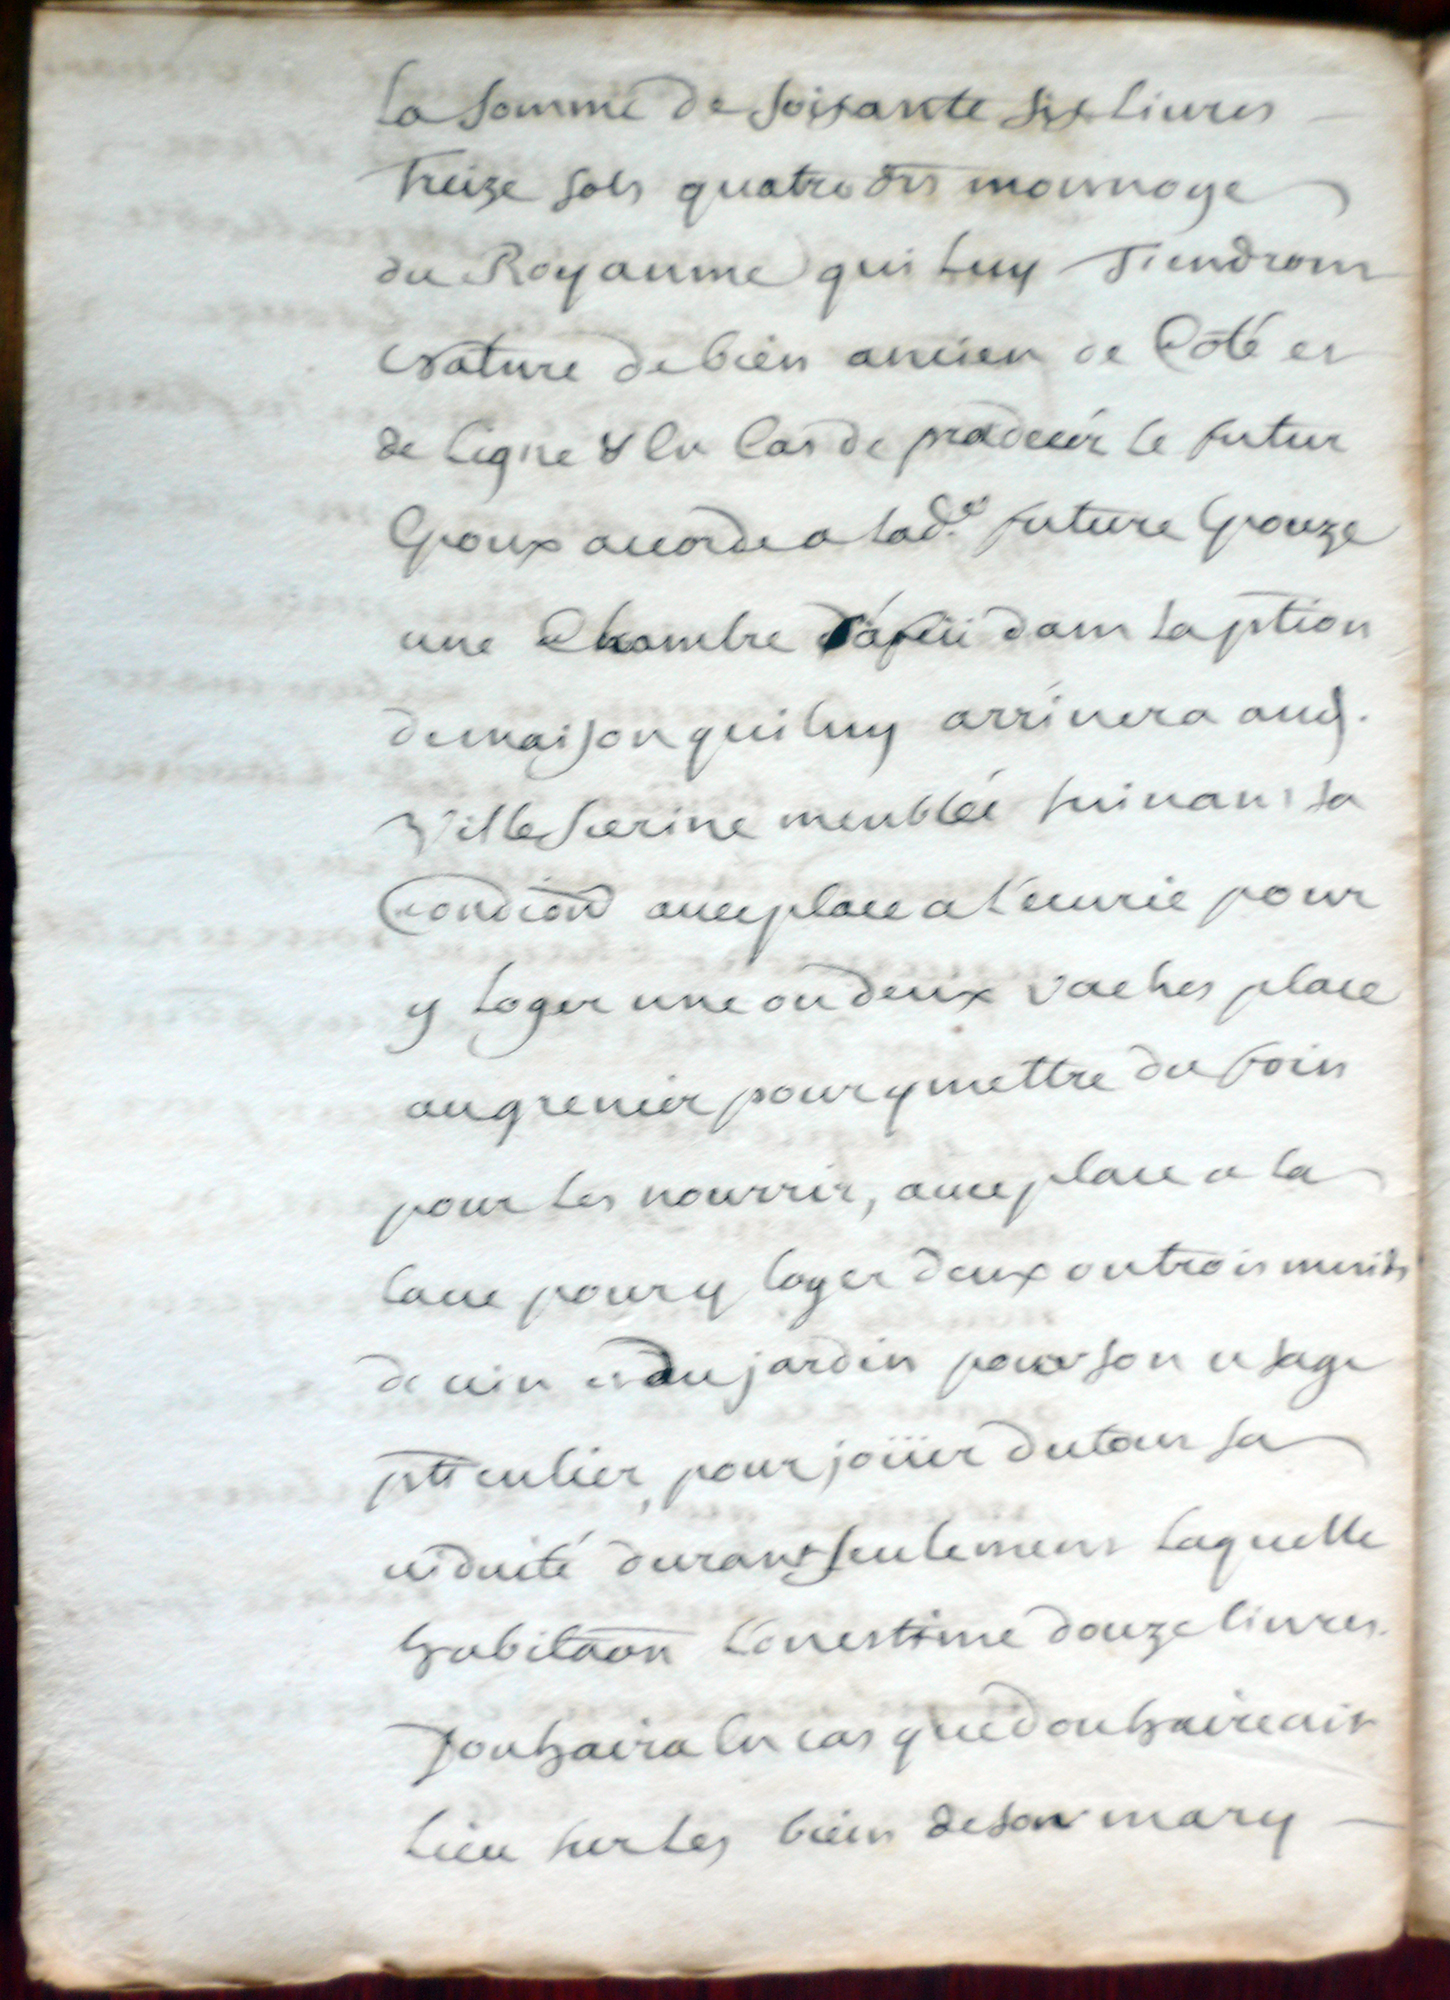 la somme de soixante six livres
treize sols quatre drs monnoye
du Royaume qui luy tiendront
nature de bien ancien de Coté et
de ligne & En Cas de pradecér le futur
Epoux accorde a lad.e future Epouze
une Chambre àfeü dans la ption
de maison qui luy arrivera aud.
Ville serine meublée suivant sa
Condiōn avec place a l'ecurie pour
y loger une ou deux vaches place
au grenier pour y mettre du foin
pour les nourrir, avec place a la
cave pour y loger deux ou trois muids
de vin et du jardin pour son usage
pticulier, pour joüir du tout sa
viduité durant seulement laquelle
habitaōn l'on estime douze livres.
Douhaira En cas que douhaire ait
lieu sur les biens de son mary